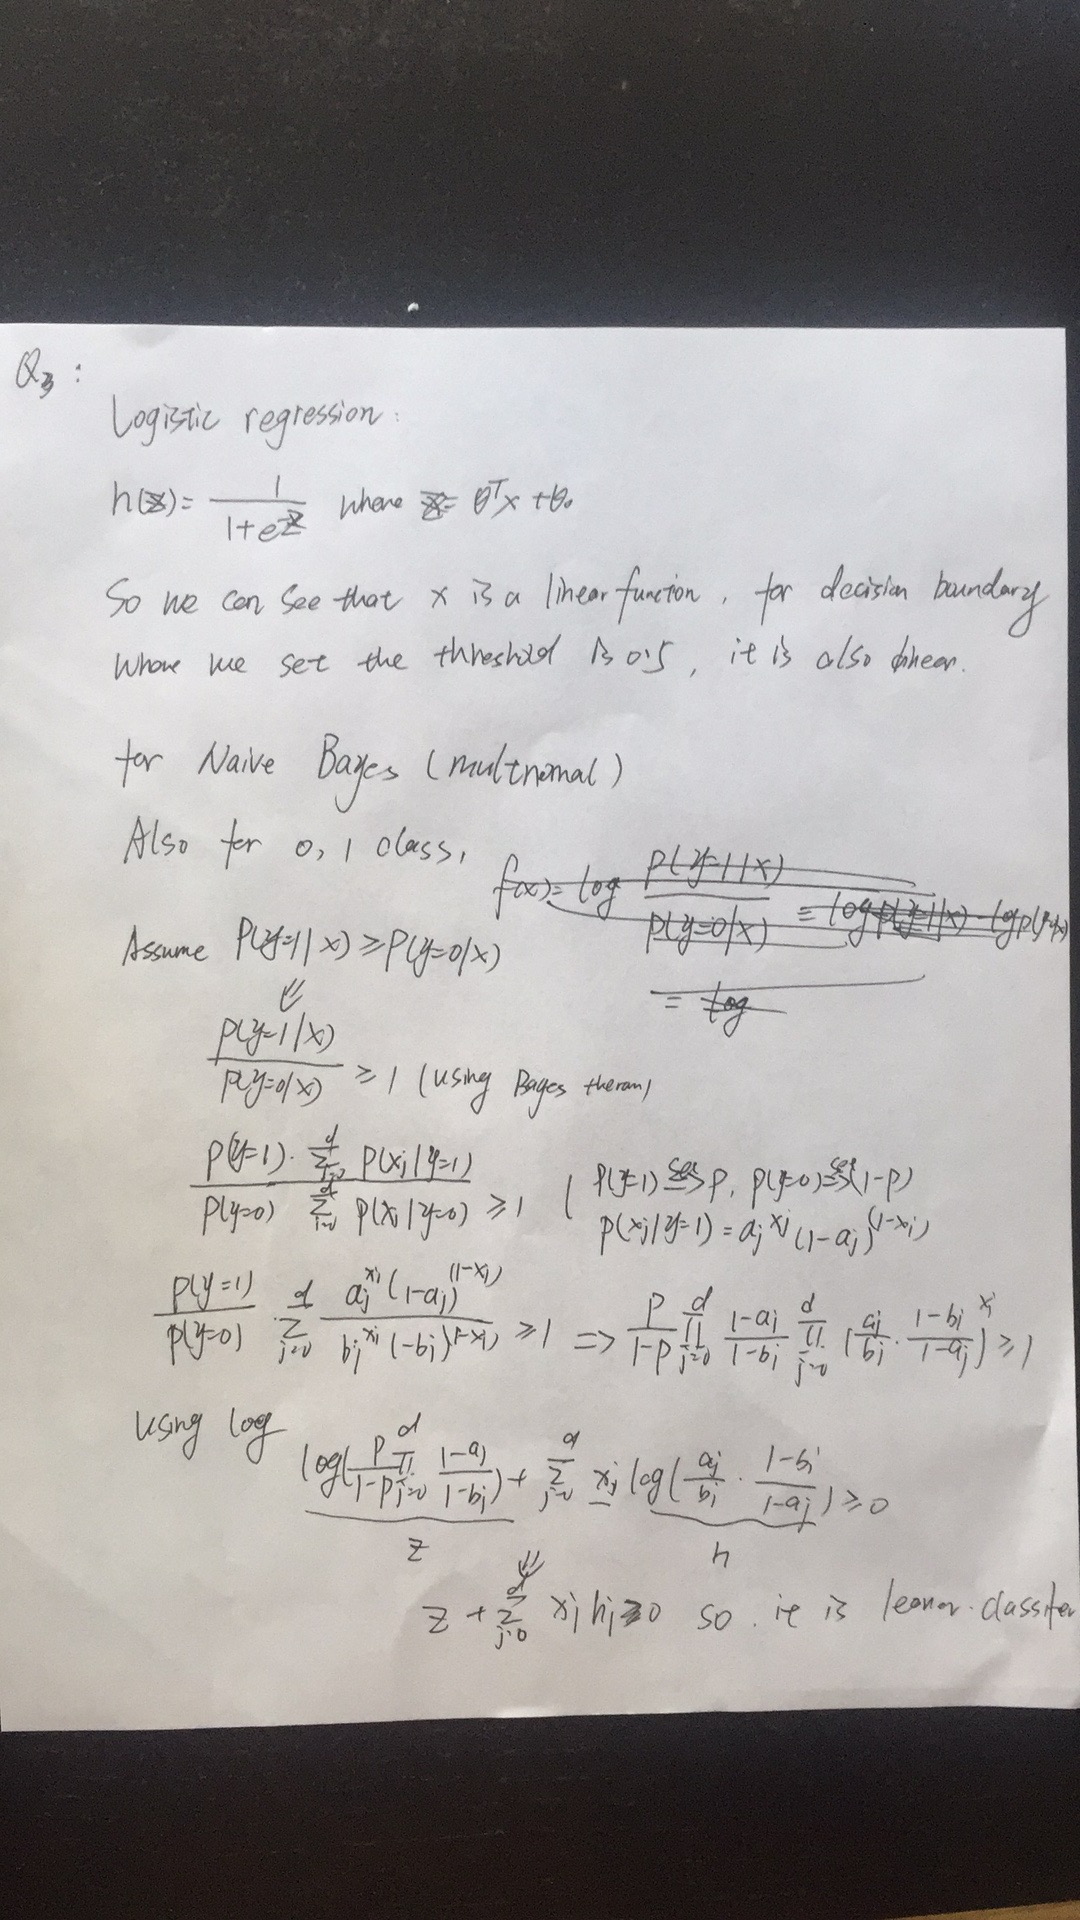 Q3:
Logistic regression:
h(z) = 1 / (1+e^-z) where z = θ^T x + θ0
So we can see that x is a linear function, for decision boundary
where we set the threshold is 0.5, it is also linear.
for Naive Bayes (multnomal)
Also for 0, 1 class,
f(x) = log P(y=1|x) / P(y=0|x) = log P(y=1|x) - log P(y=0|x)
= log
Assume P(y=1|x) ≥ P(y=0|x)
⇓
P(y=1|x) / P(y=0|x) ≥ 1 (using Bayes theram)
P(y=1)· Σ_{j=0}^d P(xj|y=1) / P(y=0) Σ_{j=0}^d P(xj|y=0) ≥ 1 ( P(y=1) set=> P, P(y=0) set=> (1-P)
P(xj|y=1) = aj^xj (1-aj)^(1-xj)
P(y=1) / P(y=0) · Σ_{j=0}^d aj^xj (1-aj)^(1-xj) / bj^xj (-bj)^(1-xj) ≥ 1 => P / 1-P Π_{j=0}^d 1-aj / 1-bj Π_{j=0}^d (aj / bj · 1-bj / 1-aj)^xj ≥ 1
Using log
log( P / 1-P Π_{j=0}^d 1-aj / 1-bj ) + Σ_{j=0}^d xj log( aj / bj · 1-bj / 1-aj ) ≥ 0
z h
⇓
z + Σ_{j=0}^d xj hj ≥ 0 so. it is leaner classifer